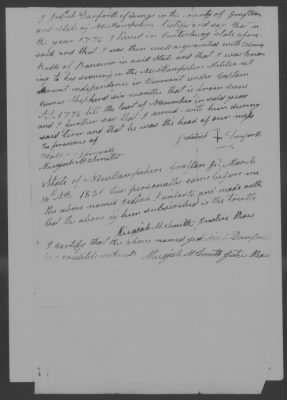 I Jedediah Danforth of Orange in the county of Grafton
and State of New Hampshire testify and say that in
the year 1776 I lived in Canterbury State afore
said and that I was then well acquainted with
of Boscawen in said State and that I was
to his serving in the New Hampshire Militia at
Mount independence in Vermont under Captain
James Shephard six months that is from June
1776 till the last of November in said year
and I further say that I served with him during
said time and that he was the head of our mess
In presence of
Jedediah + Danforth
mark
Micajah M Smith
State of New Hampshire Grafton ss March
14th AD. 1831 Then personally came before me
the above named Jedediah Danforth and made oath
that the above by him subscribed is the truth
Micajah M Smith, Justice Peace
I certify that the above named Jedediah Danforth
is a credible witness Micajah M Smith Justice Peace